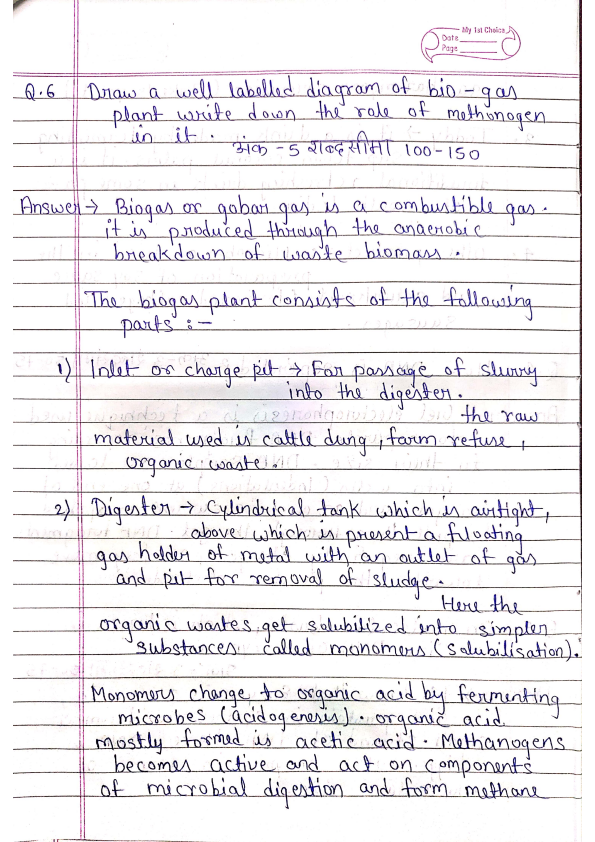 My 1st Choice
Date
Page
Q.6 Draw a well labelled diagram of bio-gas
plant write down the role of methonogen
in it.
अंक -5 शब्दसीमा 100-150
Answer → Biogas or gobar gas is a combustible gas.
it is produced through the anaerobic
breakdown of waste biomass.
The biogas plant consists of the following
parts :-
1) Inlet or charge pit → For passage of slurry
into the digester.
the raw
material used is cattle dung, farm refuse,
organic waste.
2) Digester → Cylindrical tank which is airtight,
above which is present a fuloating
gas holder of metal with an outlet of gas
and pit for removal of sludge.
Here the
organic wastes get solubilized into simpler
substances called monomers (solubilisation).
Monomers change to organic acid by fermenting
microbes (acidogenesis). organic acid
mostly formed is acetic acid. Methanogens
becomes active and act on components
of microbial digestion and form methane